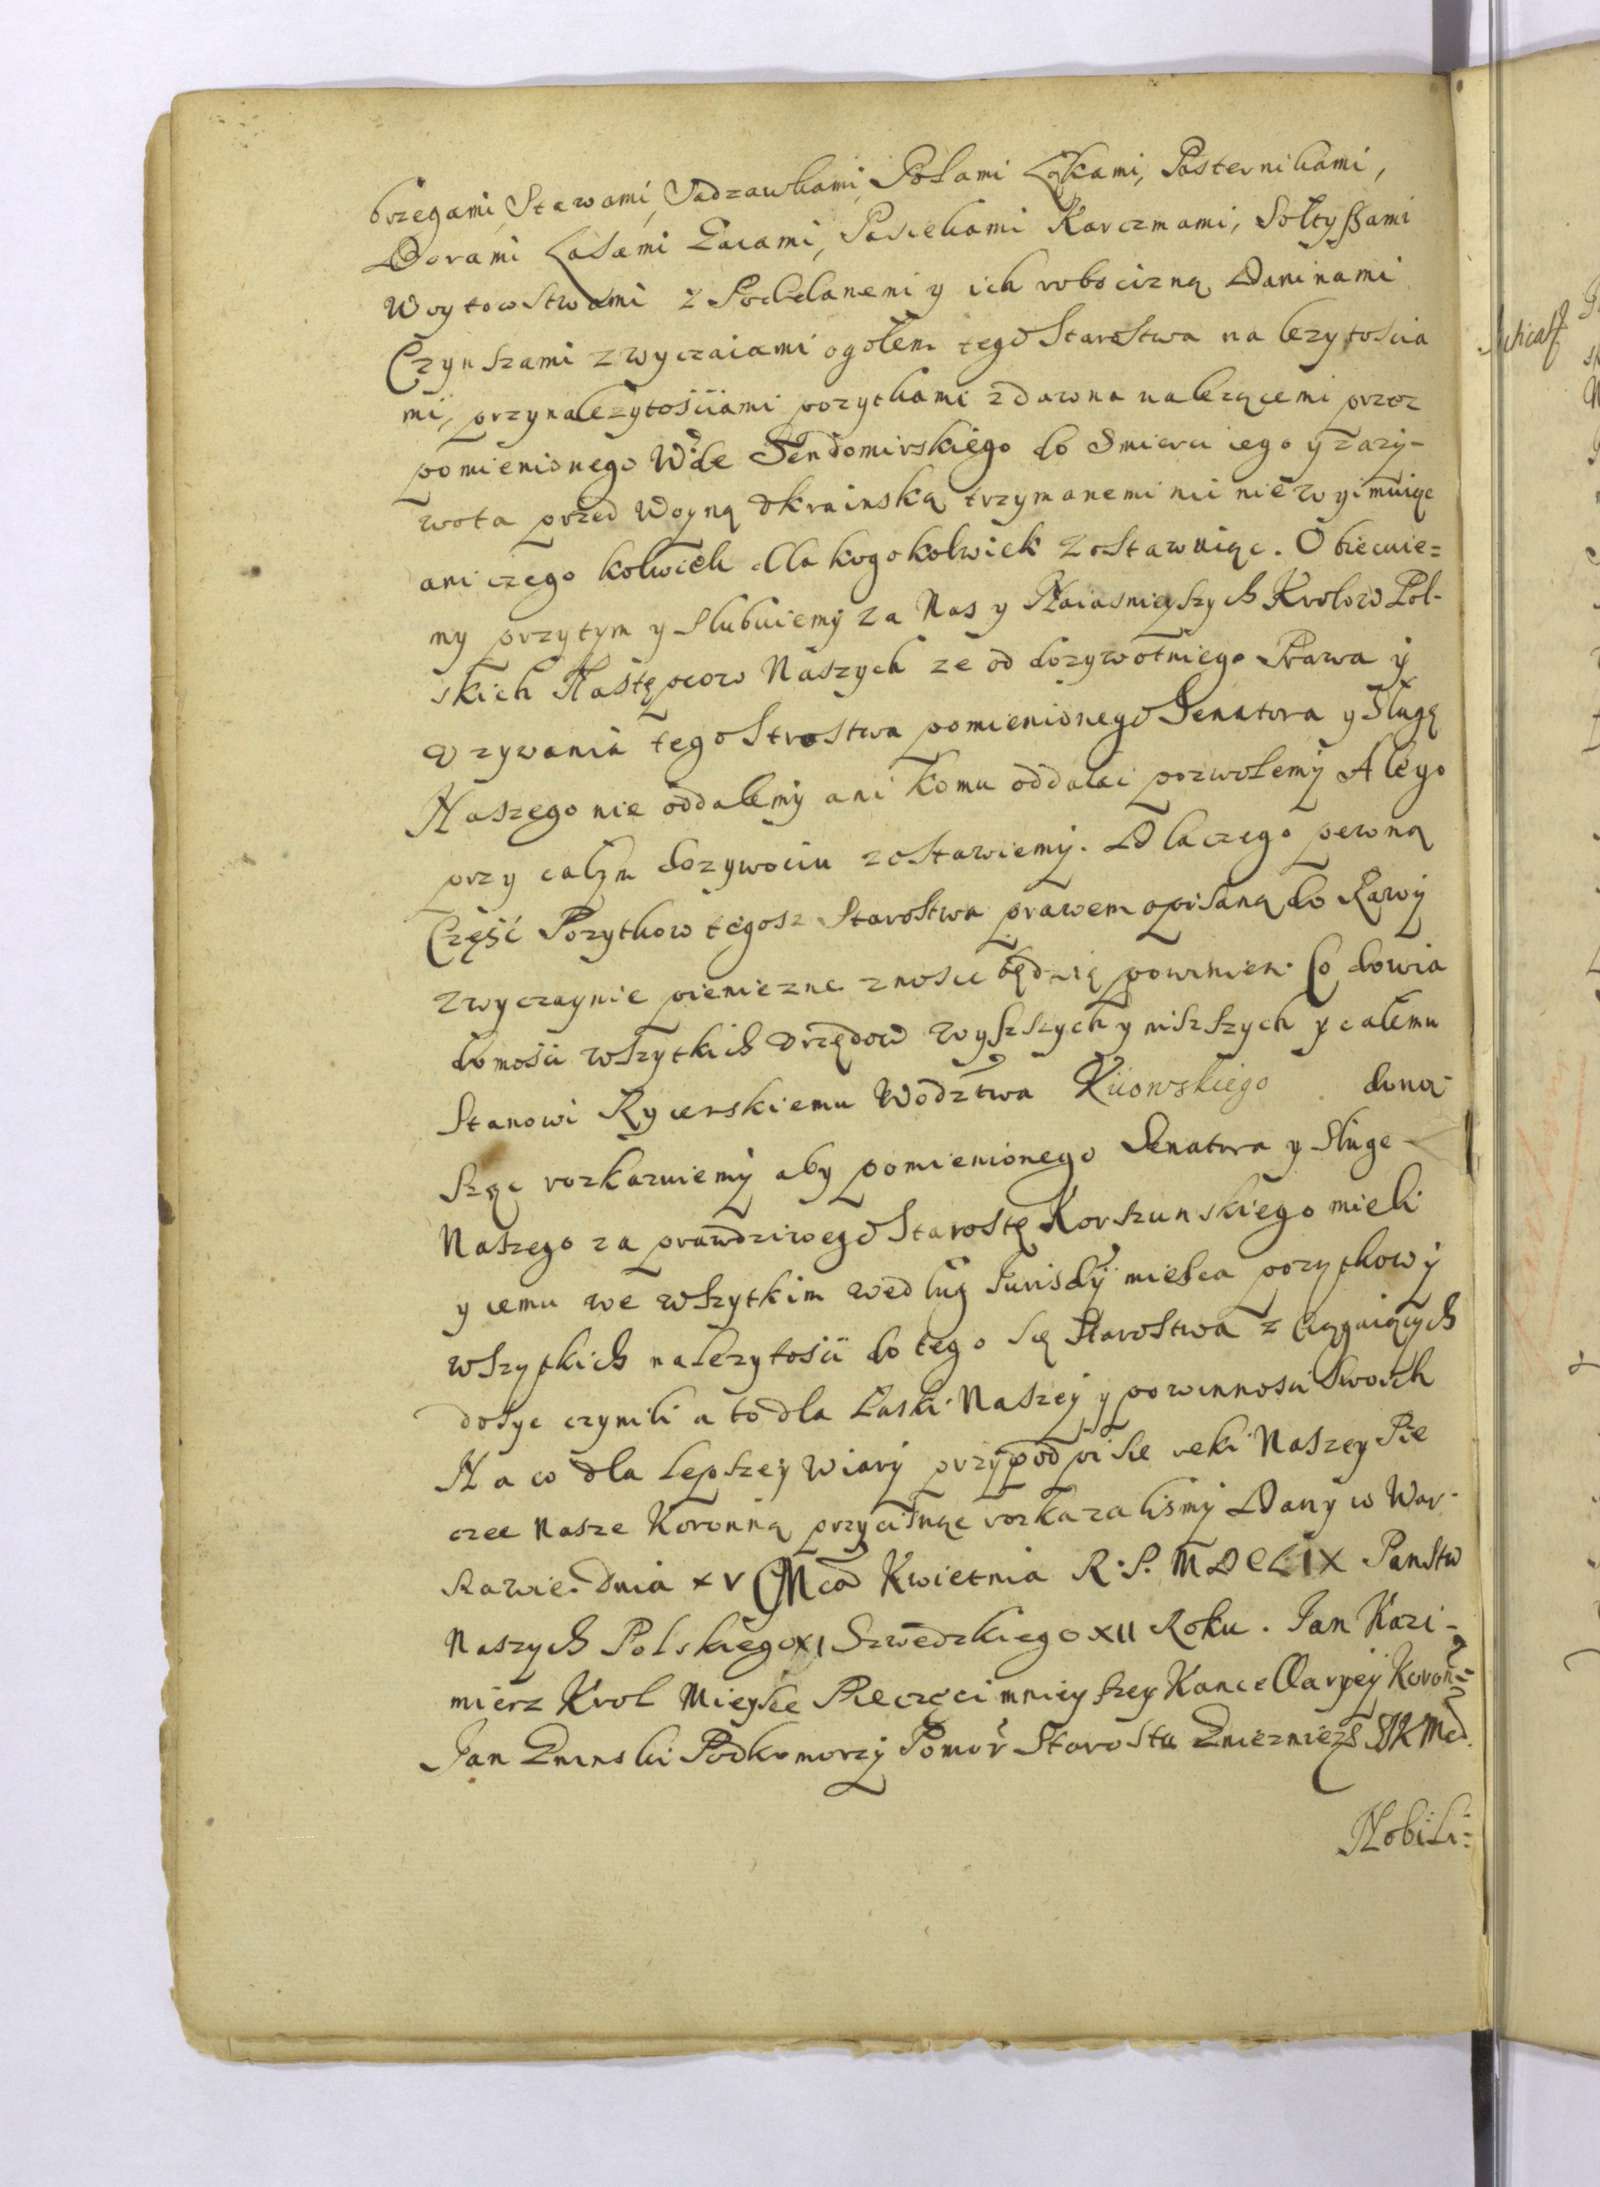 brzegami, Stawami, Sadzawkami, Polami Łąkami, Pasternikami,
Borami Lasami Gaiami, Pasiekami Karczmami, Sołtyssami
Woytowstwami z Poddanemi y ich robocizną Daninami
Czynszami zwyczaiami ogołem tego Starostwa nalezytoscia
mi, przynalezytosciami pozytkami zdawna nalezącemi przez
pomienionego Wdę Sendomirskiego do Smierci iego y zazy-
wota przed Woyną Vkrainską trzymanemi nic nie wyimuiąc
ani czego kolwiek dla kogokolwiek zostawuiąc. Obiecuie=
my przytym y slubuiemy za Nas y Naiasnieyszych Krolow Pol-
skich Następcow Naszych ze od dozywotniego Prawa y
vzywania tego Strostwa pomienionego Senatora y Sługę
Naszego nie oddalemy ani komu oddalać pozwolemy Ale go
przy całym dozywociu zostawiemy. Dlaczego pewną
Część Pozytkow tegosz Starostwa prawem opisaną do Rawy
zwyczaynie pieniezne znosic będzie powinien. Co do wia
domosci wszytkich vrzędow wyszszych y niszszych y całemu
Stanowi Rycerskiemu Wodztwa Kiiowskiego dono-
sząc rozkazuiemy aby pomienionego Senatora y Sługe
Naszego za prawdziwego Starostę Korszunskiego mieli
y iemu we wszytkim według Jurisdy mieisca pozytkow y
wszytkich nalezytosci do tego się Starostwa zciągaiących
dosyc czynili a to dla Łaski Naszey y powinnosci Swoich
Na co dla lepszey wiary przy podpisie reki Naszey Pie
czec Nasze Koronną przycisnąc rozkazalismy Dany w War-
szawie. Dnia XV Mca Kwietnia R. P. MDCLIX Panstw
Naszych Polskiego XI Szwedzkiego XII Roku. Jan Kazi-
mierz Krol Mieysce Pieczęci mnieyszey Kancellaryey Koron=
Jan Gninski Podkomorzy Pomor Starosta Gniezniens JKMci.
Nobili=